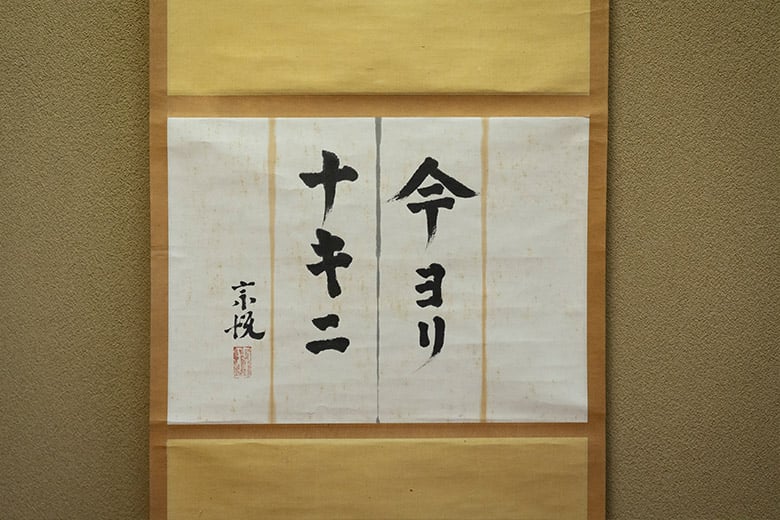 今ヨリ
ナキニ
宗悦